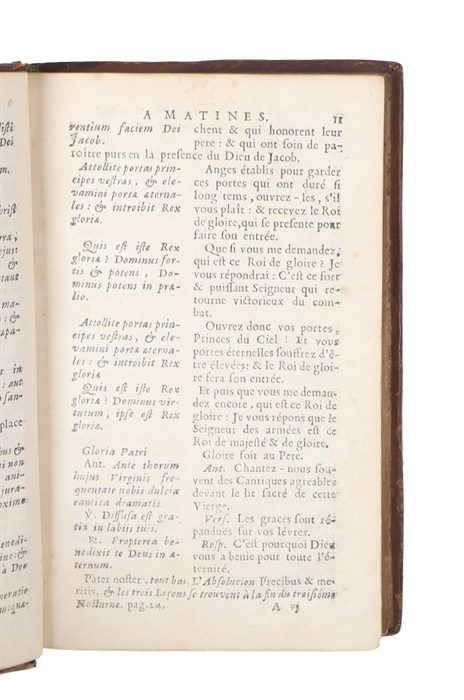 A MATINES. 11
rentium faciem Dei
Jacob.
Attollite portas prin-
cipes vestras, & ele-
vamini portæ æterna-
les : & introibit Rex
gloriæ.
Quis est iste Rex
gloriæ ? Dominus for-
tis & potens, Do-
minus potens in præ-
lio.
Attollite portas prin-
cipes vestras, & ele-
vamini portæ æterna-
les : & introibit Rex
gloriæ
Quis est iste Rex
gloriæ ? Dominus vir-
tutum, ipse est Rex
gloriæ.
Gloria Patri
Ant. Ante thorum
hujus Virginis fre-
quentate nobis dulcia
cantica dramatis.
℣. Diffusa est gra-
tia in labiis tuis.
℟. Propterea be-
nedixit te Deus in æ-
ternum.
chent & qui honorent leur
pere : & qui ont soin de pa-
roître purs en la presence du Dieu de Jacob.
Anges établis pour garder
ces portes qui ont duré si
long-tems, ouvrez-les, s'il
vous plaît : & recevez le Roi
de gloire, qui se presente pour
faire son entrée.
Que si vous me demandez,
qui est ce Roi de gloire ? Je
vous répondrai : C'est ce fort
& puissant Seigneur qui re-
tourne victorieux du com-
bat.
Ouvrez donc vos portes,
Princes du Ciel ! Et vous
portes éternelles souffrez d'ê-
tre élevées : & le Roi de gloi-
re fera son entrée.
Et puis que vous me deman-
dez encore, qui est ce Roi de
gloire : Je vous répons que le
Seigneur des armées est ce
Roi de majesté & de gloire.
Gloire soit au Pere.
Ant. Chantez-nous sou-
vent des Cantiques agreables
devant le lit sacré de cette
Vierge.
Vers. Les graces sont ré-
pandués sur vos lévres.
Resp. C'est pourquoi Dieu
vous a benie pour toute l'é-
ternité.
Pater noster, tout bas L'Absolution Precibus & me-
ritis, & les trois Leçons se trouvent à la fin du troisiéme
Nocturne. pag. 24. A vj